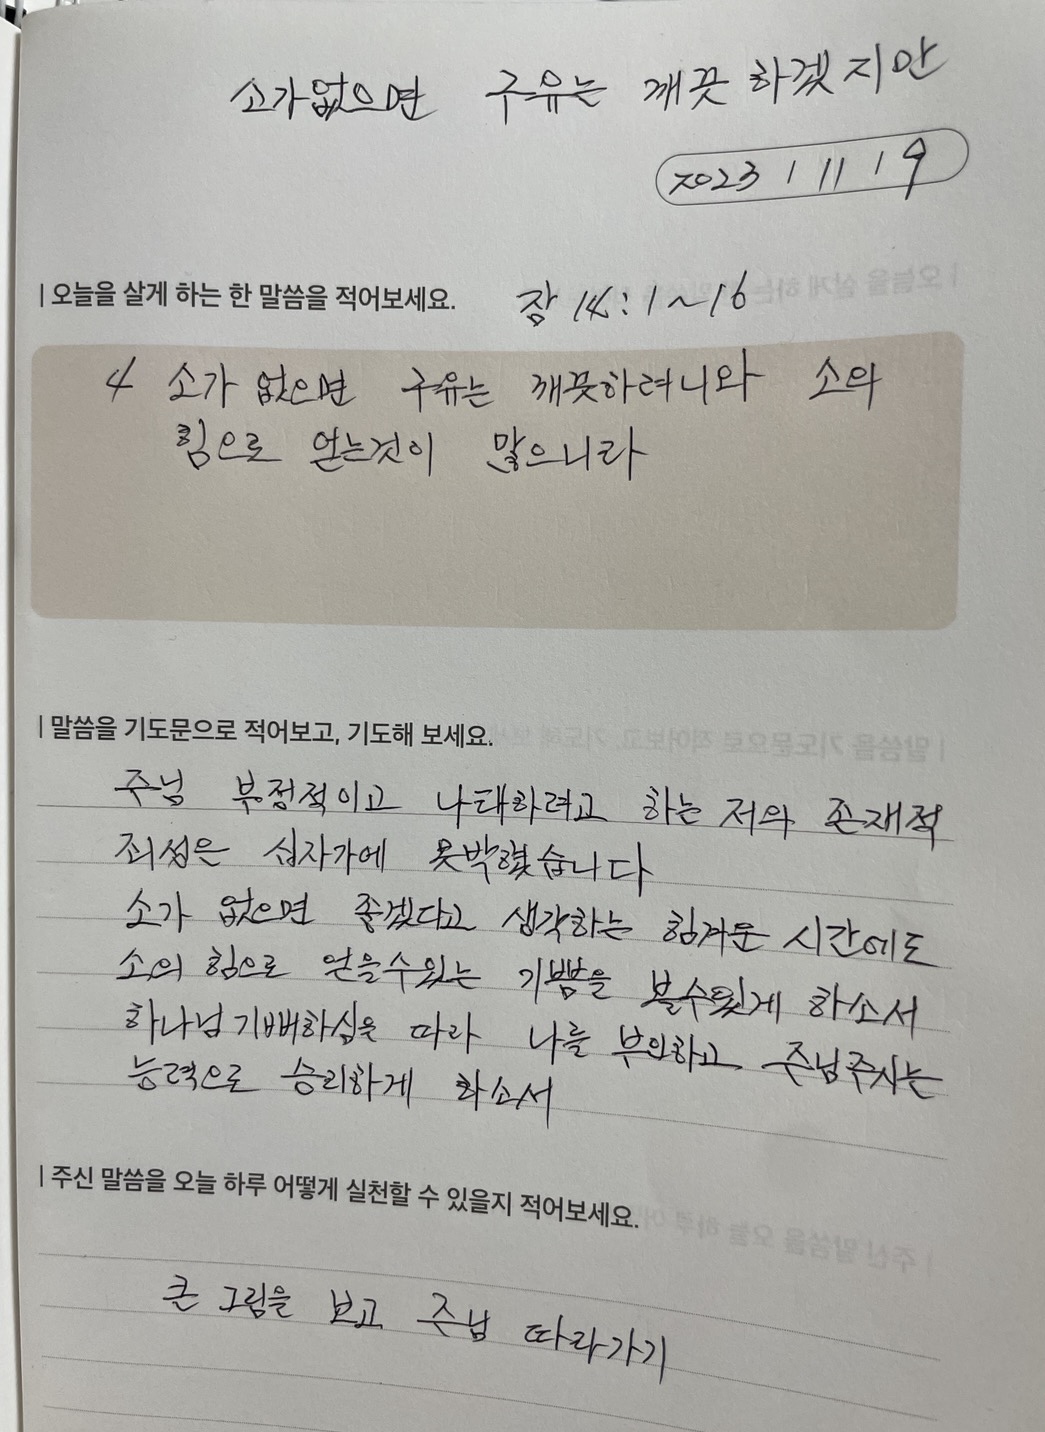 소가없으면 구유는 깨끗하겠지만
2023 / 11 / 9
| 오늘을 살게 하는 한 말씀을 적어보세요. 잠 14:1~16
4 소가 없으면 구유는 깨끗하려니와 소의
힘으로 얻는것이 많으니라
| 말씀을 기도문으로 적어보고, 기도해 보세요.
주님 부정적이고 나태하려고 하는 저의 존재적
죄성은 십자가에 못박혔습니다
소가 없으면 좋겠다고 생각하는 힘겨운 시간에도
소의 힘으로 얻을수있는 기쁨을 볼수있게 하소서
하나님 기뻐하심을 따라 나를 부인하고 주님주시는
능력으로 승리하게 하소서
| 주신 말씀을 오늘 하루 어떻게 실천할 수 있을지 적어보세요.
큰 그림을 보고 주님 따라가기